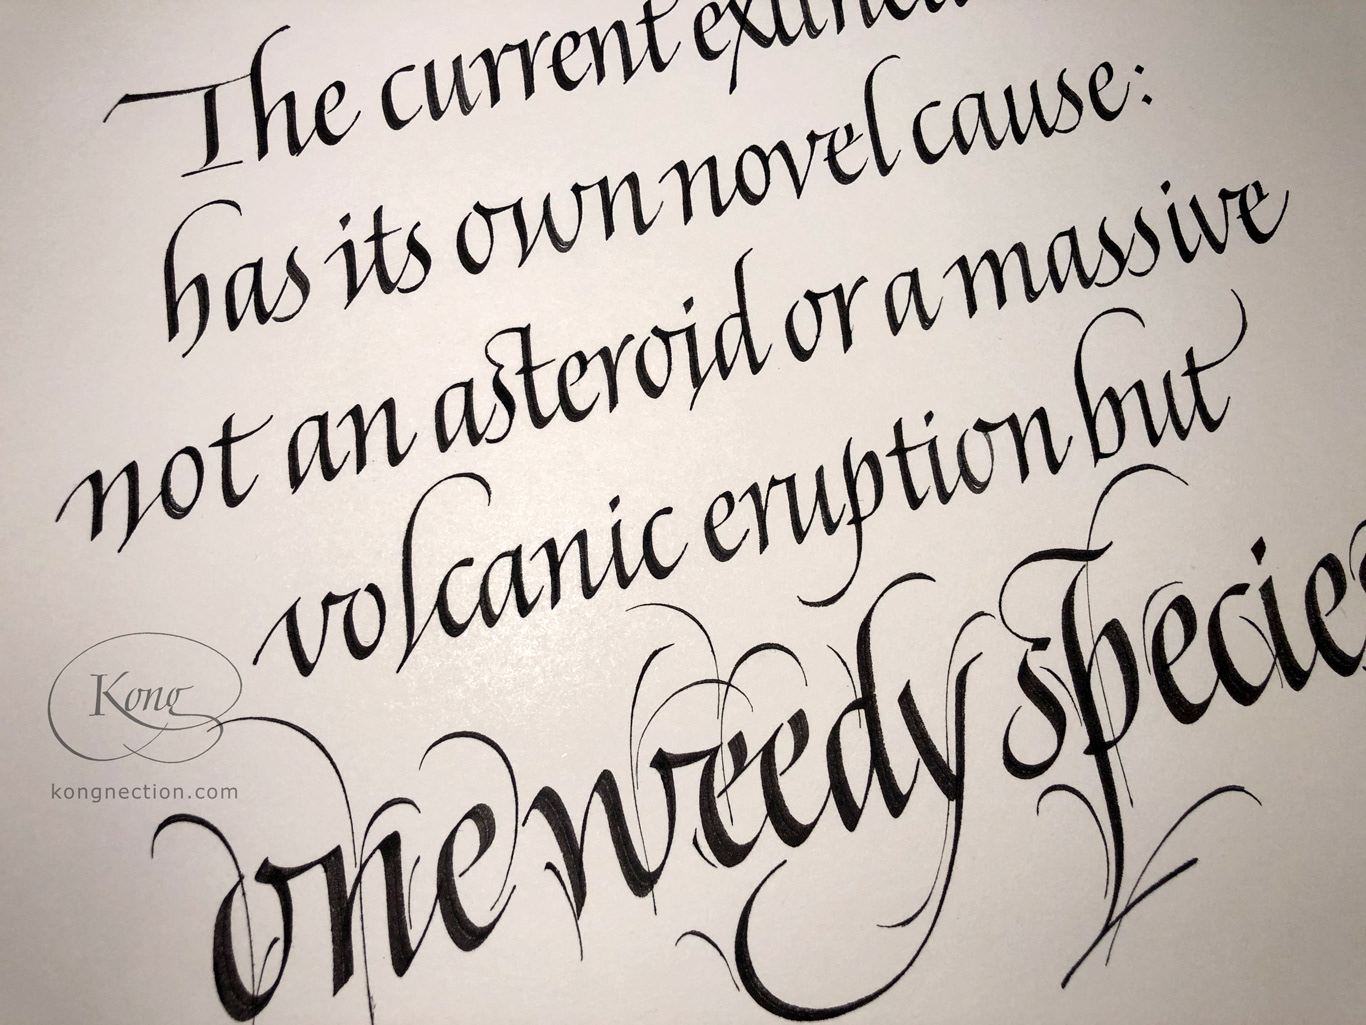 The current
has its own novel cause:
not an asteroid or a massive
volcanic eruption but
one weedy species
Kong
kongnection.com